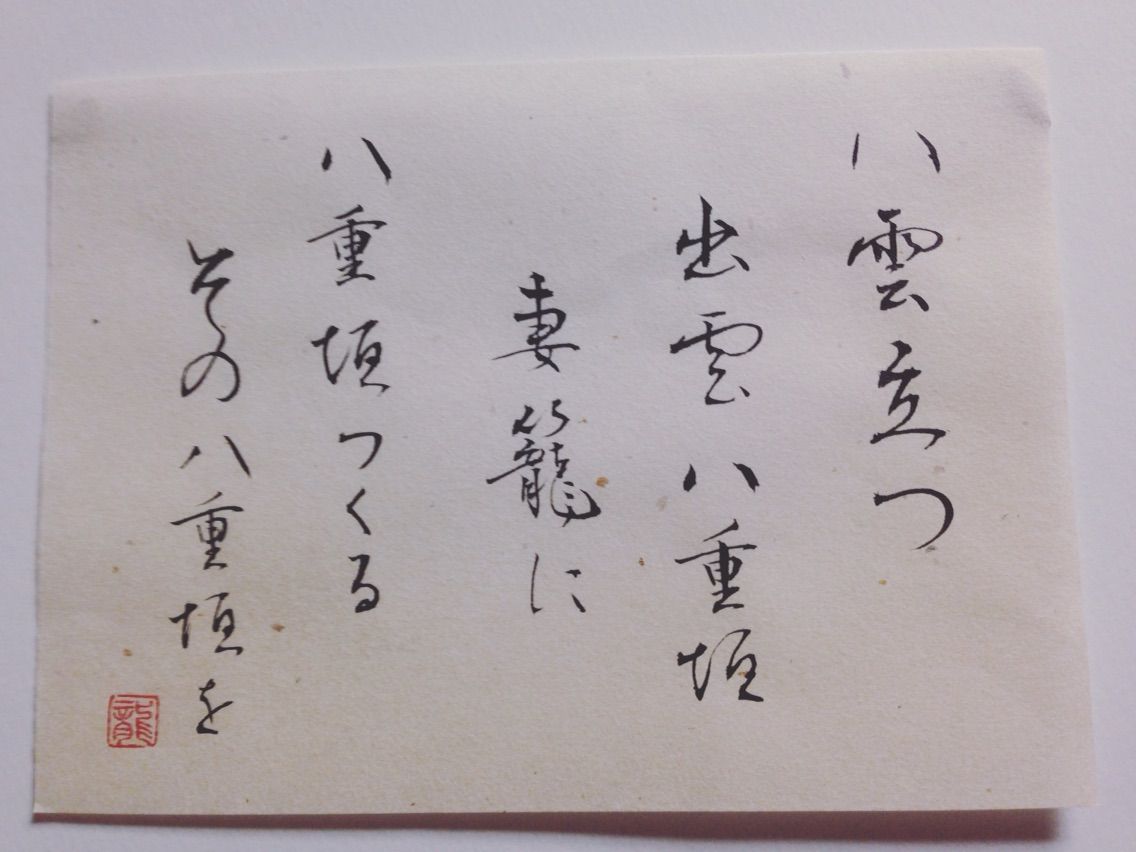 八雲立つ
出雲八重垣
妻籠に
八重垣つくる
その八重垣を
龍